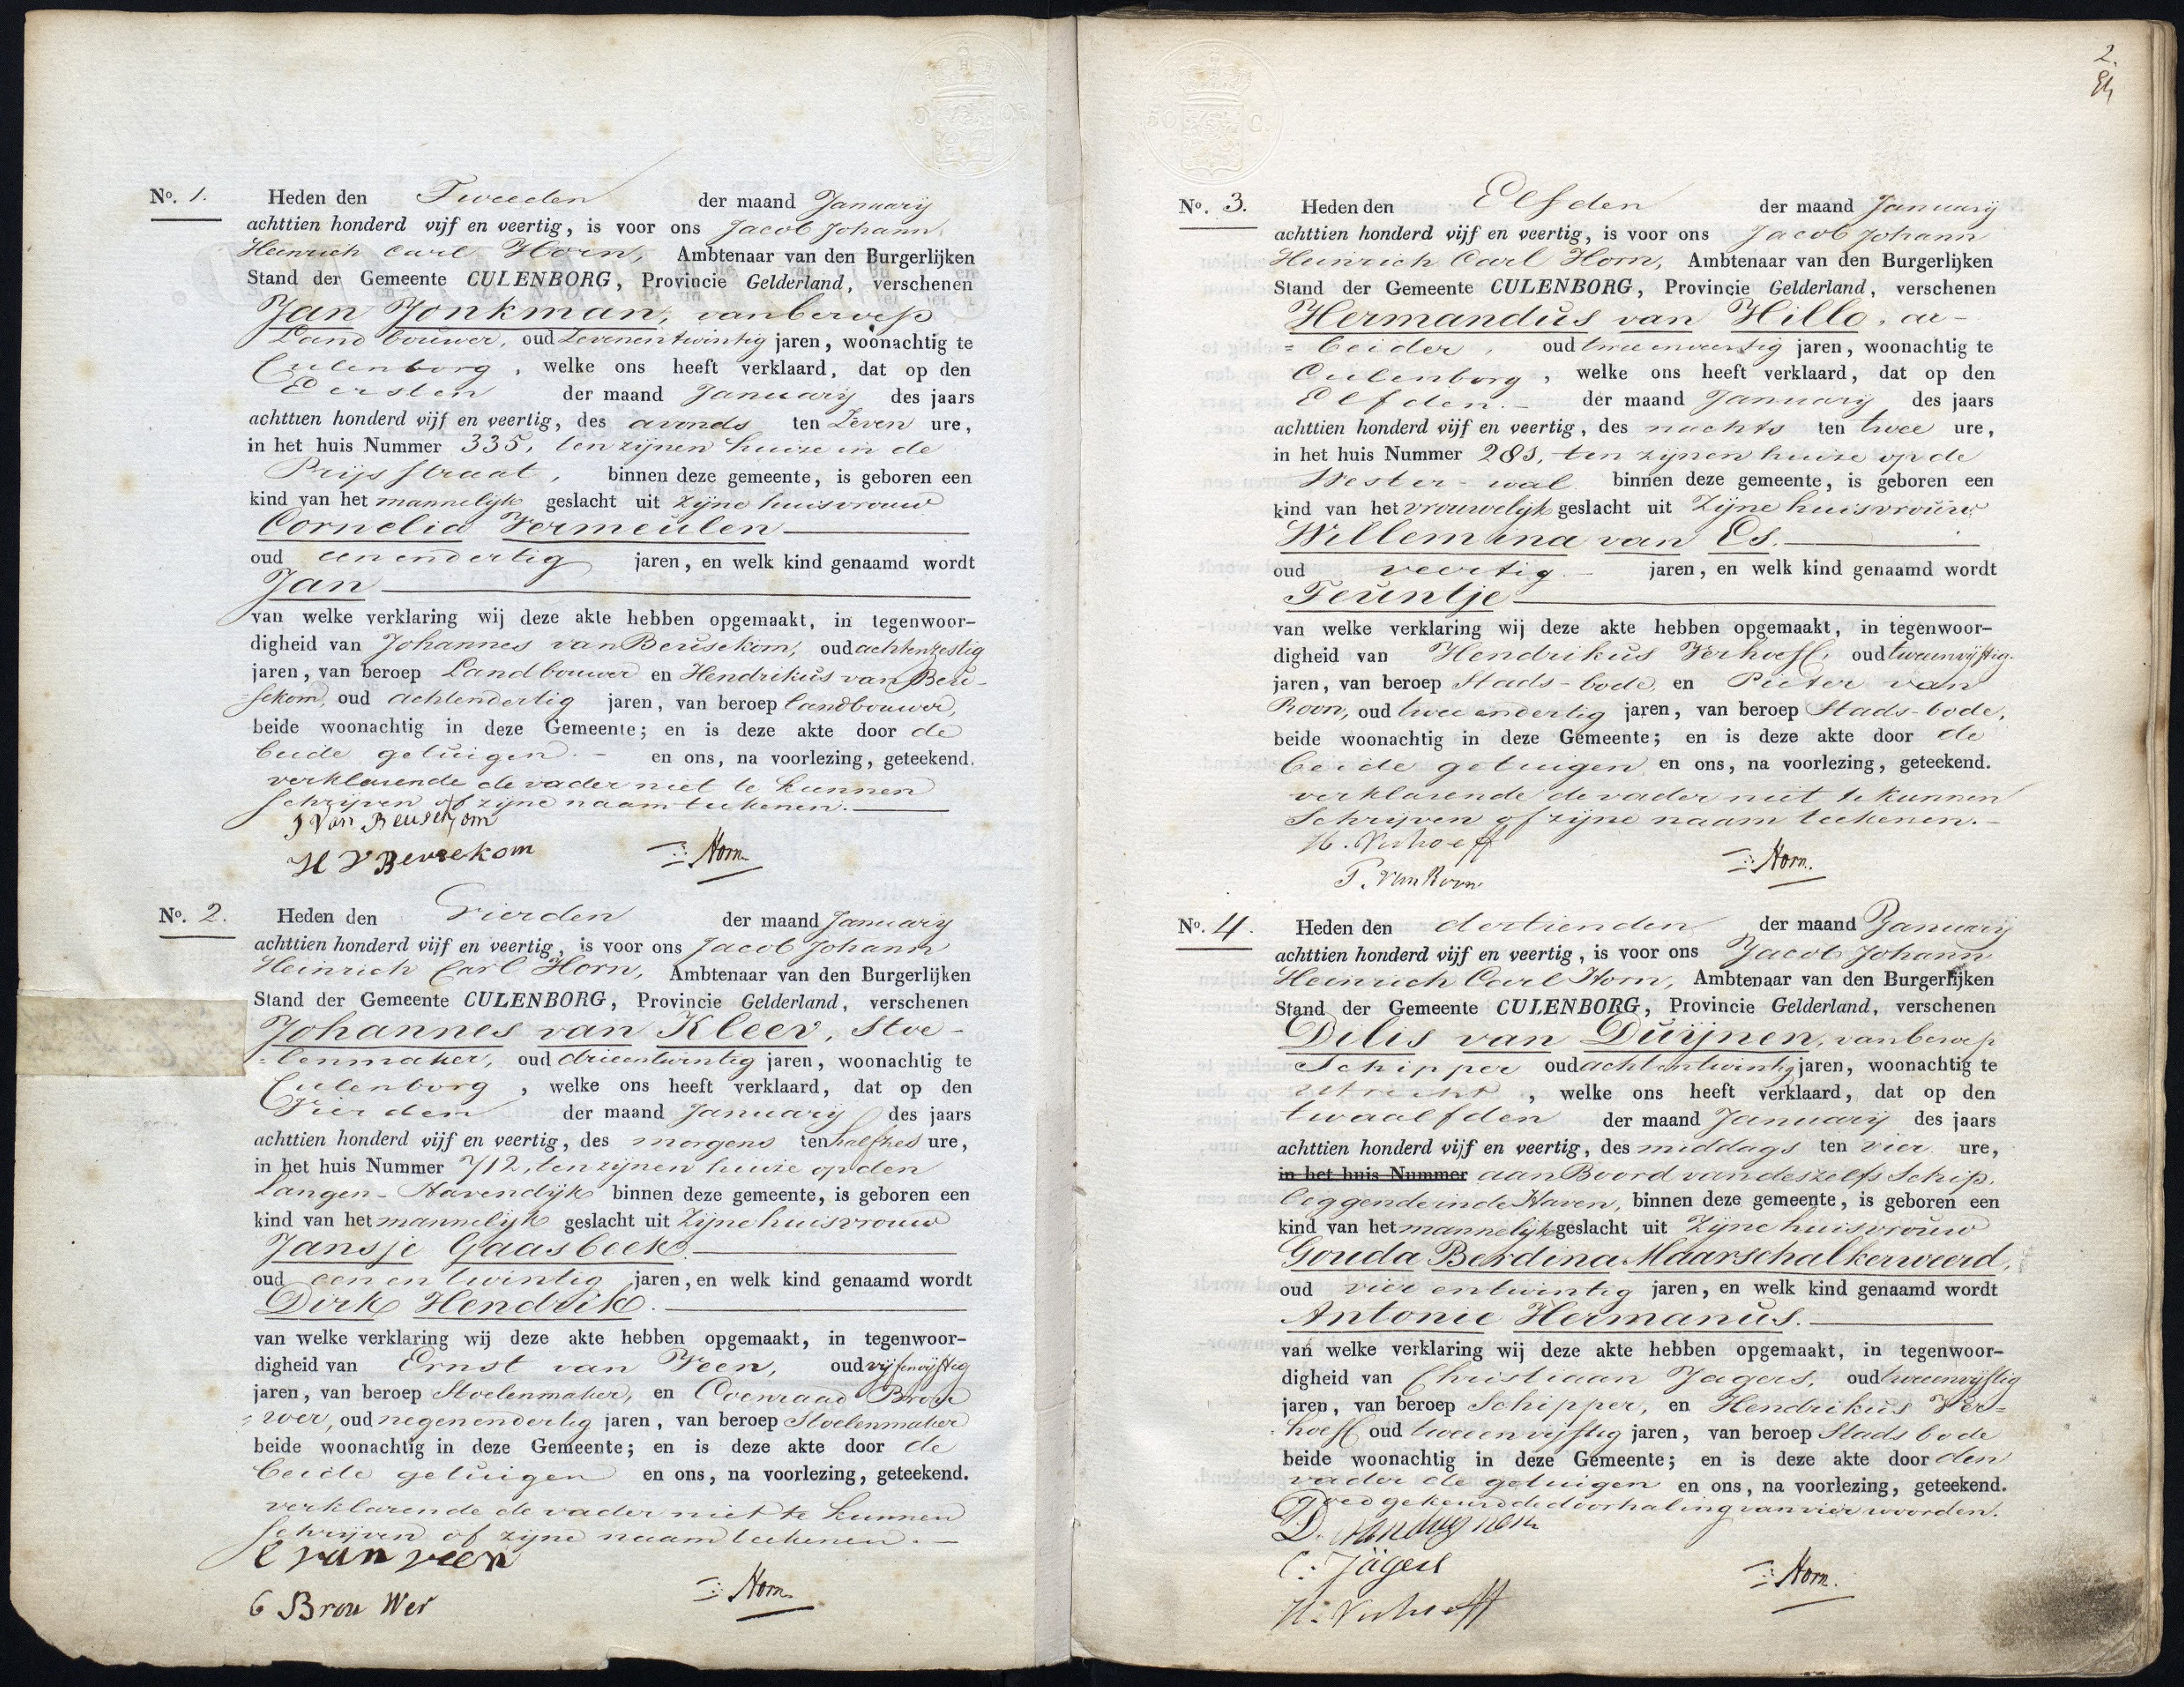 No. 1. Heden den Tweeden der maand January
achttien honderd vijf en veertig, is voor ons Jacob Johann
Heinrich Carl Horn, Ambtenaar van den Burgerlijken
Stand der Gemeente CULENBORG, Provincie Gelderland, verschenen
Jan Jonkman, van beroep
Landbouwer, oud Zevenentwintig jaren, woonachtig te
Culenborg, welke ons heeft verklaard, dat op den
Eersten der maand January des jaars
achttien honderd vijf en veertig, des avonds ten Zeven ure,
in het huis Nummer 335, ten zijnen huize in de
Prijsstraat, binnen deze gemeente, is geboren een
kind van het mannelijk geslacht uit zijne huisvrouw
Cornelia Vermeulen
oud eenendertig jaren, en welk kind genaamd wordt
Jan
van welke verklaring wij deze akte hebben opgemaakt, in tegenwoor-
digheid van Johannes van Beusekom, oud achtenzestig
jaren, van beroep Landbouwer en Hendrikus van Beu-
sekom, oud achtendertig jaren, van beroep landbouwer,
beide woonachtig in deze Gemeente; en is deze akte door de
beide getuigen. – en ons, na voorlezing, geteekend.
verklarende de vader niet te kunnen
schrijven of zijne naam teekenen.
J Van Beusekom
H V Beusekom Horn
No. 2. Heden den Vierden der maand January
achttien honderd vijf en veertig, is voor ons Jacob Johann
Heinrich Carl Horn, Ambtenaar van den Burgerlijken
Stand der Gemeente CULENBORG, Provincie Gelderland, verschenen
Johannes van Kleev, Stoe-
=lenmaker, oud drieentwintig jaren, woonachtig te
Culenborg, welke ons heeft verklaard, dat op den
Vierden der maand January des jaars
achttien honderd vijf en veertig, des morgens ten halfzes ure,
in het huis Nummer 712, ten zijnen huize op den
Langen-Havendijk binnen deze gemeente, is geboren een
kind van het mannelijk geslacht uit zijne huisvrouw
Jansje Gaasbeek.
oud eenentwintig jaren, en welk kind genaamd wordt
Dirk Hendrik.
van welke verklaring wij deze akte hebben opgemaakt, in tegenwoor-
digheid van Ernst van Veen, oud vijfenvijftig
jaren, van beroep Stoelenmaker, en Coenraad Brou
=wer, oud negenendertig jaren, van beroep Stoelenmaker
beide woonachtig in deze Gemeente; en is deze akte door de
beide getuigen en ons, na voorlezing, geteekend.
verklarende de vader niet te kunnen
schrijven of zijne naam teekenen. –
E van veen
C Brou Wer Horn
2.
No. 3. Heden den Elfden der maand January
achttien honderd vijf en veertig, is voor ons Jacob Johann
Heinrich Carl Horn, Ambtenaar van den Burgerlijken
Stand der Gemeente CULENBORG, Provincie Gelderland, verschenen
Hermandus van Hillo, ar-
=beider, oud tweeenveertig jaren, woonachtig te
Culenborg, welke ons heeft verklaard, dat op den
Elfden. – der maand January des jaars
achttien honderd vijf en veertig, des nachts ten twee ure,
in het huis Nummer 281, ten zijnen huize op de
Wester-wal binnen deze gemeente, is geboren een
kind van het vrouwelijk geslacht uit zijne huisvrouw
Willemina van Es.
oud veertig. – jaren, en welk kind genaamd wordt
Teuntje
van welke verklaring wij deze akte hebben opgemaakt, in tegenwoor-
digheid van Hendrikus Verhoeff, oud tweeenvijftig
jaren, van beroep Stads-bode, en Pieter van
Roon, oud tweeendertig jaren, van beroep Stads-bode,
beide woonachtig in deze Gemeente; en is deze akte door de
beide getuigen en ons, na voorlezing, geteekend.
verklarende de vader niet te kunnen
schrijven of zijne naam teekenen. –
H. Verhoeff
P. Van Roon Horn.
No. 4. Heden den dertienden der maand January
achttien honderd vijf en veertig, is voor ons Jacob Johann
Heinrich Carl Horn, Ambtenaar van den Burgerlijken
Stand der Gemeente CULENBORG, Provincie Gelderland, verschenen
Dilis van Duijnen, van beroep
Schipper oud achtentwintig jaren, woonachtig te
Utrecht, welke ons heeft verklaard, dat op den
twaalfden der maand January des jaars
achttien honderd vijf en veertig, des middags ten vier ure,
in het huis Nummer aan Boord van deszelfs Schip,
leggende in de Haven, binnen deze gemeente, is geboren een
kind van het mannelijk geslacht uit zijne huisvrouw
Gouda Berdina Maarschalkerweerd,
oud vierentwintig jaren, en welk kind genaamd wordt
Antonie Hermanus.
van welke verklaring wij deze akte hebben opgemaakt, in tegenwoor-
digheid van Christiaan Jagers, oud tweeenvijftig
jaren, van beroep Schipper, en Hendrikus Ver=
hoeff oud tweeenvijftig jaren, van beroep Stads bode
beide woonachtig in deze Gemeente; en is deze akte door den
vader de getuigen en ons, na voorlezing, geteekend.
goedgekeurd de doorhaling van vier woorden.
D. van duynen
C: Jägers
H. Verhoeff Horn.